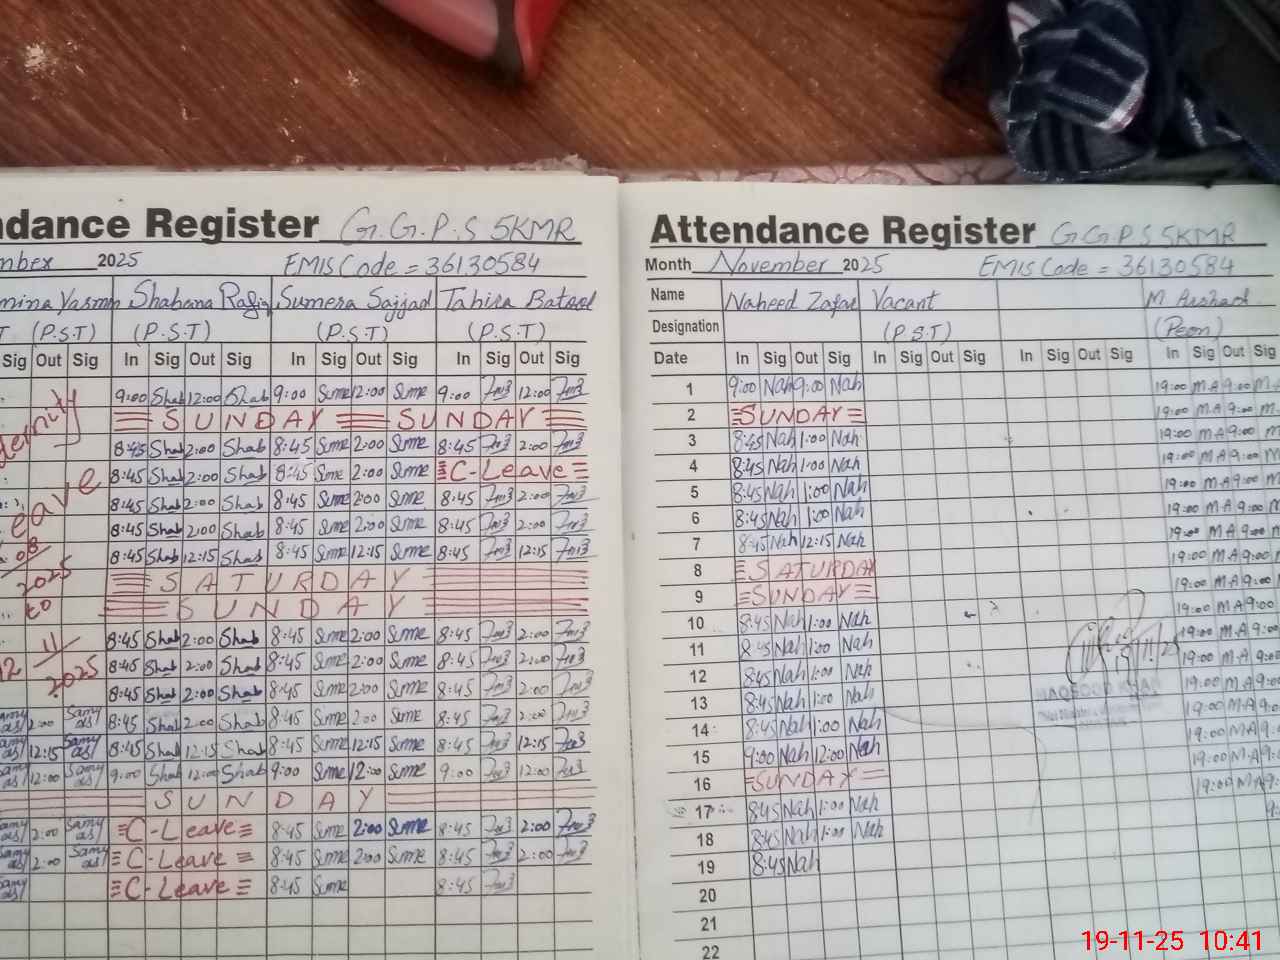 ndance Register G.G.P.S 5KMR
mber 2025 EMIS Code = 36130584
mina Yasmin Shabana Rafiq Sumera Sajjad Tahira Batool
T (P.S.T) (P.S.T) (P.S.T) (P.S.T)
Sig Out Sig In Sig Out Sig In Sig Out Sig In Sig Out Sig
9:00 Shab 12:00 Shab 9:00 Sume 12:00 Sume 9:00 12:00
SUNDAY SUNDAY
8:45 Shab 2:00 Shab 8:45 Sume 2:00 Sume 8:45 2:00
8:45 Shab 2:00 Shab 8:45 Sume 2:00 Sume C-Leave
eave 8:45 Shab 2:00 Shab 8:45 Sume 2:00 Sume 8:45 2:00
8:45 Shab 2:00 Shab 8:45 Sume 2:00 Sume 8:45 2:00
08 8:45 Shab 12:15 Shab 8:45 Sume 12:15 Sume 8:45 12:15
2025 SATURDAY
to SUNDAY
11 8:45 Shab 2:00 Shab 8:45 Sume 2:00 Sume 8:45 2:00
2025 8:45 Shab 2:00 Shab 8:45 Sume 2:00 Sume 8:45 2:00
8:45 Shab 2:00 Shab 8:45 Sume 2:00 Sume 8:45 2:00
2:00 8:45 Shab 2:00 Shab 8:45 Sume 2:00 Sume 8:45 2:00
12:15 8:45 Shab 12:15 Shab 8:45 Sume 12:15 Sume 8:45 12:15
12:00 9:00 Shab 12:00 Shab 9:00 Sume 12:00 Sume 9:00 12:00
SUNDAY
2:00 C-Leave 8:45 Sume 2:00 Sume 8:45 2:00
2:00 C-Leave 8:45 Sume 2:00 Sume 8:45 2:00
C-Leave 8:45 Sume 8:45
Attendance Register G.G.P.S 5KMR
Month November 2025 EMIS Code = 36130584
Name Naheed Zafar Vacant M Arshad
Designation (P.S.T) (Peon)
Date In Sig Out Sig In Sig Out Sig In Sig Out Sig In Sig Out Sig
1 9:00 Nah 9:00 Nah 19:00 M.A 9:00 M
2 SUNDAY 19:00 M.A 9:00 M
3 8:45 Nah 1:00 Nah 19:00 M.A 9:00 M
4 8:45 Nah 1:00 Nah 19:00 M.A 9:00 M
5 8:45 Nah 1:00 Nah 19:00 M.A 9:00
6 8:45 Nah 1:00 Nah 19:00 M.A 9:00
7 8:45 Nah 12:15 Nah 19:00 M.A 9:00
8 SATURDAY 19:00 M.A 9:00
9 SUNDAY 19:00 M.A 9:00
10 8:45 Nah 1:00 Nah 19:00 M.A 9:00
11 8:45 Nah 1:00 Nah 19:00 M.A 9:00
12 8:45 Nah 1:00 Nah 19:00 M.A 9:00
13 8:45 Nah 1:00 Nah 19:00 M.A 9:00
14 8:45 Nah 1:00 Nah 19:00 M.A 9:
15 9:00 Nah 12:00 Nah 19:00 M.A 9:
16 SUNDAY 19:00 M.A 9:
17 8:45 Nah 1:00 Nah
18 8:45 Nah 1:00 Nah
19 8:45 Nah
20
21
22
19-11-25 10:41